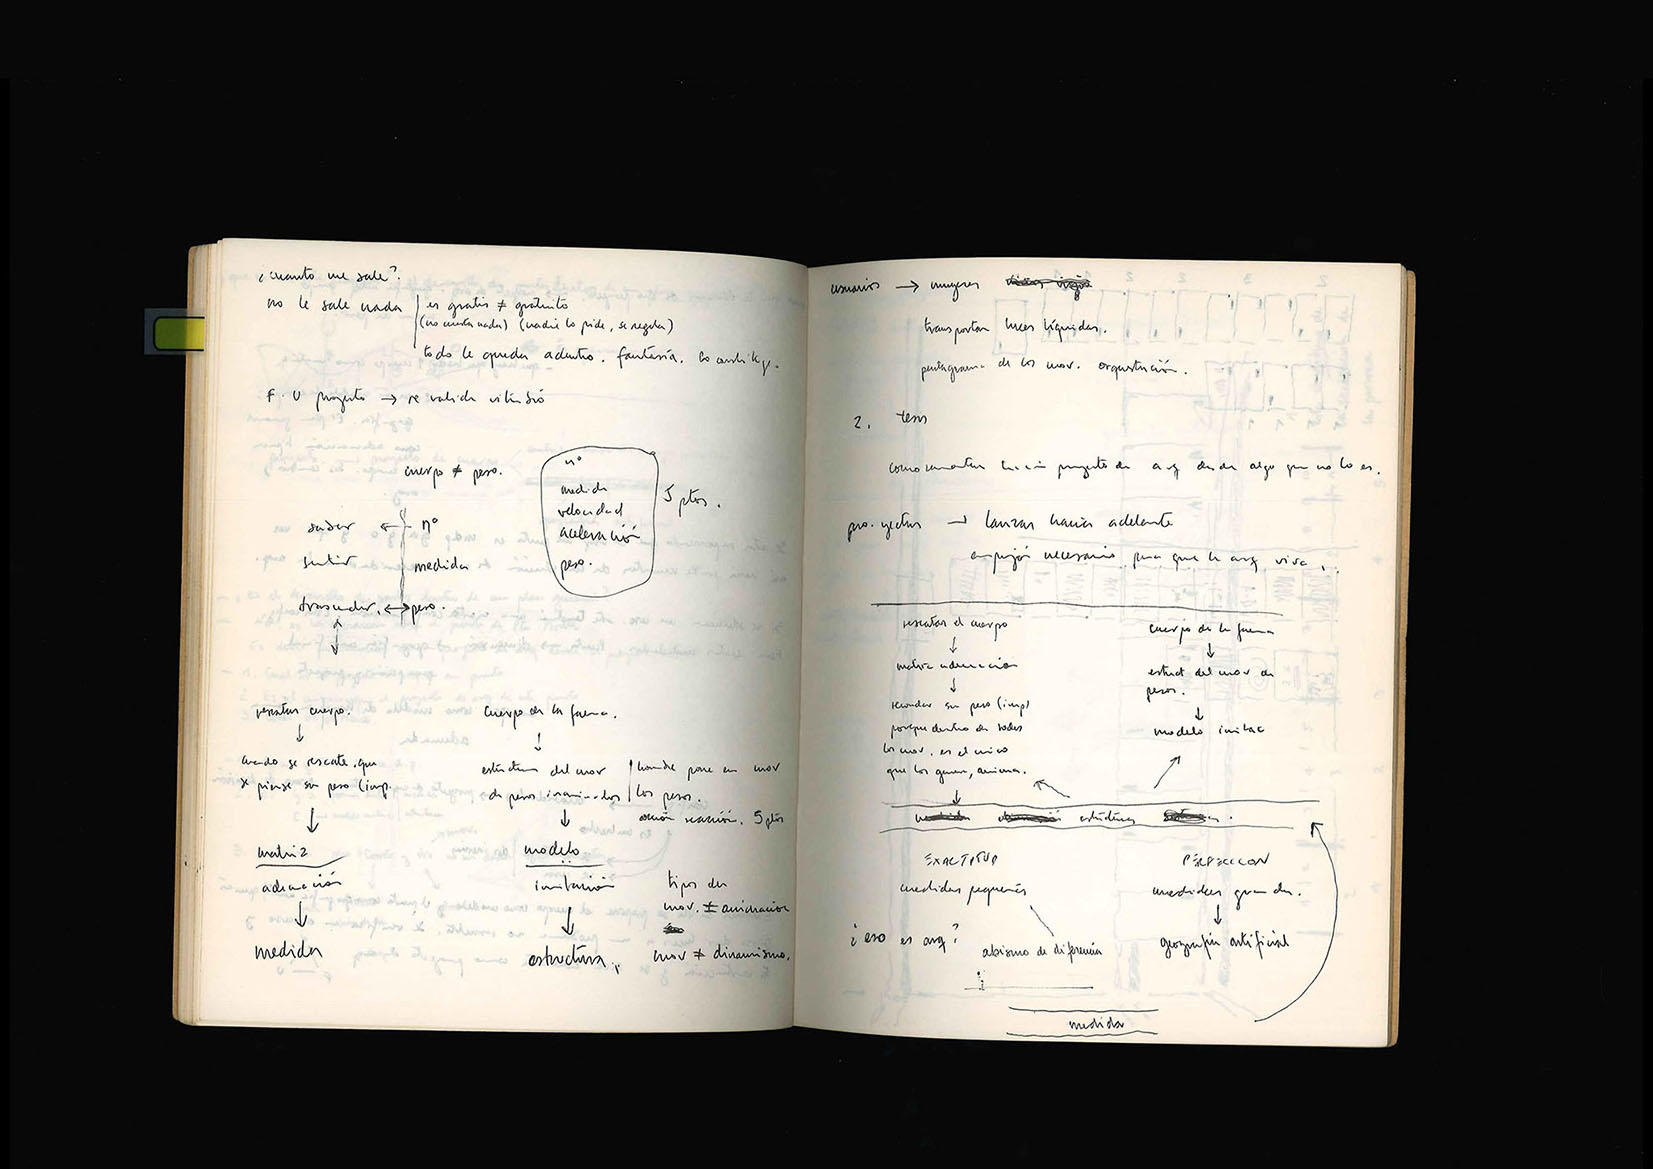 ¿cuanto me sale?
no le sale nada es gratis ≠ gratuito
(no cuesta nada) (nadie lo pide, se regala)
todo le queda adentro. fantasía.
proyecto → se valida
cuerpo ≠ peso.
nº
medida
velocidad
aceleración
peso.
5 ptos.
saber ← nº
sentir medidas
trascender. ↔ peso.
rescatar cuerpo.
↓
cuando se rescate, que
x piense su peso (imp.
↓
matriz
adecuación
↓
medida
cuerpo de la faena.
↓
estructura del mov
de pesos inanimados
↓
modelo
imitación
↓
estructura
hombre pone en mov
los pesos.
acción reacción. 5 ptos
tipos de
mov. ≠ animación
mov ≠ dinamismo.
usuarios → mujeres
transportan luces líquidas.
pentagrama de los mov. orquestación.
2. tesis
como sustentar proyecto de arq desde algo que no lo es.
pro-yectus → lanzar hacia adelante
empujón necesario para que la arq viva
rescatar el cuerpo
↓
matriz adecuación
↓
recordar su peso (imp)
porque dentro de todos
los mov. es el único
que los genera, anima.
cuerpo de la faena
↓
estruct del mov de
pesos.
↓
modelo imitac
estructuras
EXACTITUD
medidas pequeñas
PERFECCION
medidas grandes.
↓
geografía artificial
¿eso es arq?
abismo de diferencia
medida